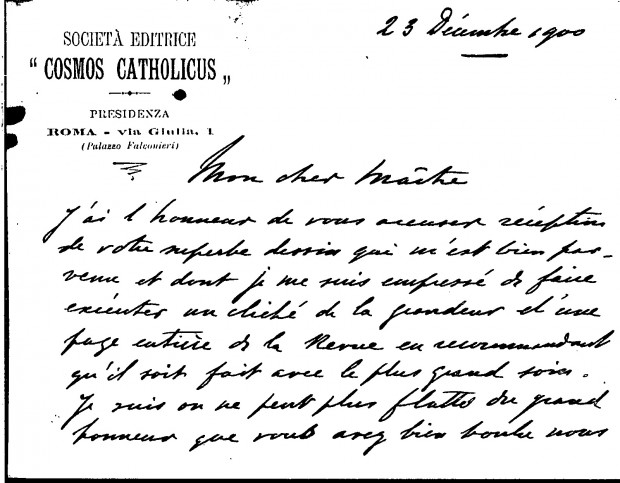 23 Décembre 1900
SOCIETÀ EDITRICE
"COSMOS CATHOLICUS„
PRESIDENZA
ROMA - via Giulia, 1
(Palazzo Falconieri)
Mon cher Maître
J'ai l'honneur de vous accuser réception
de votre superbe dessin qui m'est bien par-
venu et dont je me suis empressé de faire
exécuter un cliché de la grandeur d'une
page entière de la Revue en recommandant
qu'il soit fait avec le plus grand soin.
Je suis on ne peut plus flatté du grand
honneur que vous avez bien voulu nous